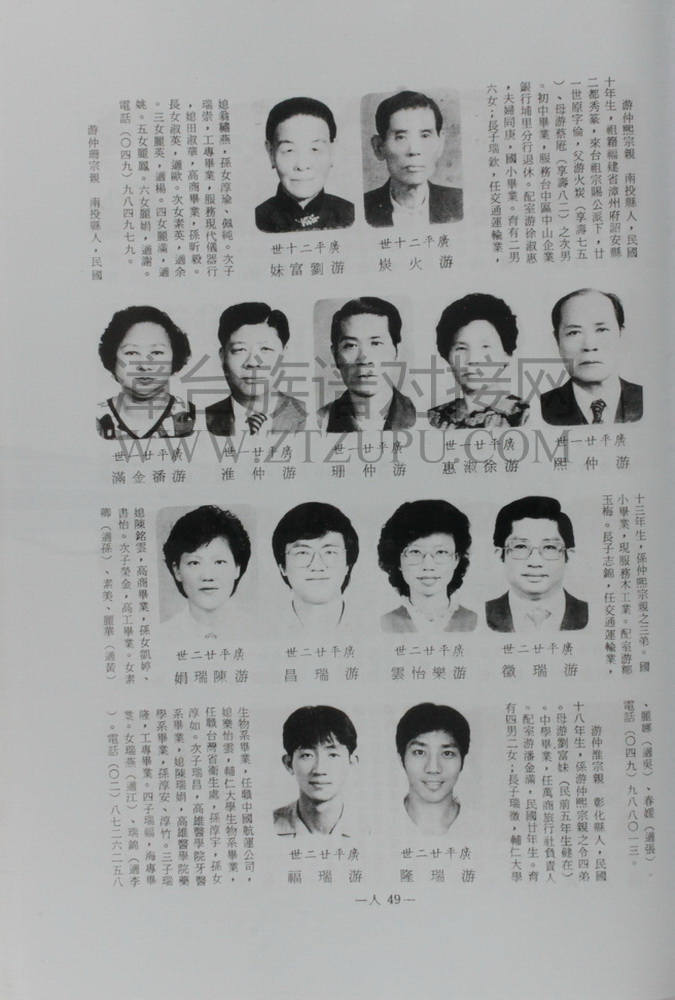 游仲熙宗親　南投縣人，民國
十年生，祖籍福建省漳州府詔安縣
二都秀篆，來台祖宗賜公派下，廿
一世原字倫，父游火炭（享壽七五
）、母游蔡𨑨（享壽八二）之次男
。初中畢業，服務台中區中山企業
銀行埔里分行退休。配室游徐淑惠
，夫婦同庚，國小畢業。育有二男
六女；長子瑞欽，任交通運輸業，
廣平二十世
游火炭
廣平二十世
游劉富妹
媳翁繡燕，孫女淳瑜、佩純。次子
瑞崇，工專畢業，服務現代儀器行
，媳田淑華，高商畢業，孫昕毅。
長女淑英，適歐。次女素英，適余
。三女麗英，適楊。四女麗滿，適
姚。五女麗鳳。六女麗娟，適謝。
電話（〇四九）九八四九七九。
游仲珊宗親　南投縣人，民國
廣平廿一世
游仲熙
廣平廿一世
游徐淑惠
廣平廿一世
游仲珊
廣平廿一世
游仲淮
廣平廿一世
游潘金滿
章台族谱对接网
WWW.ZTZUPU.COM
十三年生，係仲熙宗親之三弟。國
小畢業，現服務木工業。配室游鄉
玉梅。長子志錦，任交通運輸業，
廣平廿二世
游瑞徵
廣平廿二世
游樂怡雲
廣平廿二世
游瑞昌
廣平廿二世
游陳瑞娟
媳陳銘雲，高商畢業，孫女凱婷、
書怡。次子榮金，高工畢業。女素
卿（適孫）、素美、麗華（適黃）
、麗娜（適吳）、春媛（適張）。
電話（〇四九）九八八〇一三。
游仲淮宗親　彰化縣人，民國
十八年生，係游仲熙宗親之令四弟
。母游劉富妹（民前五年生健在）
。中學畢業，任萬商旅行社負責人
。配室游潘金滿，民國廿年生。育
有四男二女；長子瑞徵，輔仁大學
廣平廿二世
游瑞隆
廣平廿二世
游瑞福
生物系畢業，任職中國航運公司，
媳樂怡雲，輔仁大學生物系畢業，
任職台灣省衛生處，孫淳宇，孫女
淳如。次子瑞昌，高雄醫學院牙醫
系畢業，媳陳瑞娟，高雄醫學院藥
學系畢業，孫淳安、淳竹。三子瑞
隆，工專畢業。四子瑞福，海專畢
業。女瑞燕（適江）、瑞錦（適李
）。電話（〇二）八七二六二五八
—人 49—